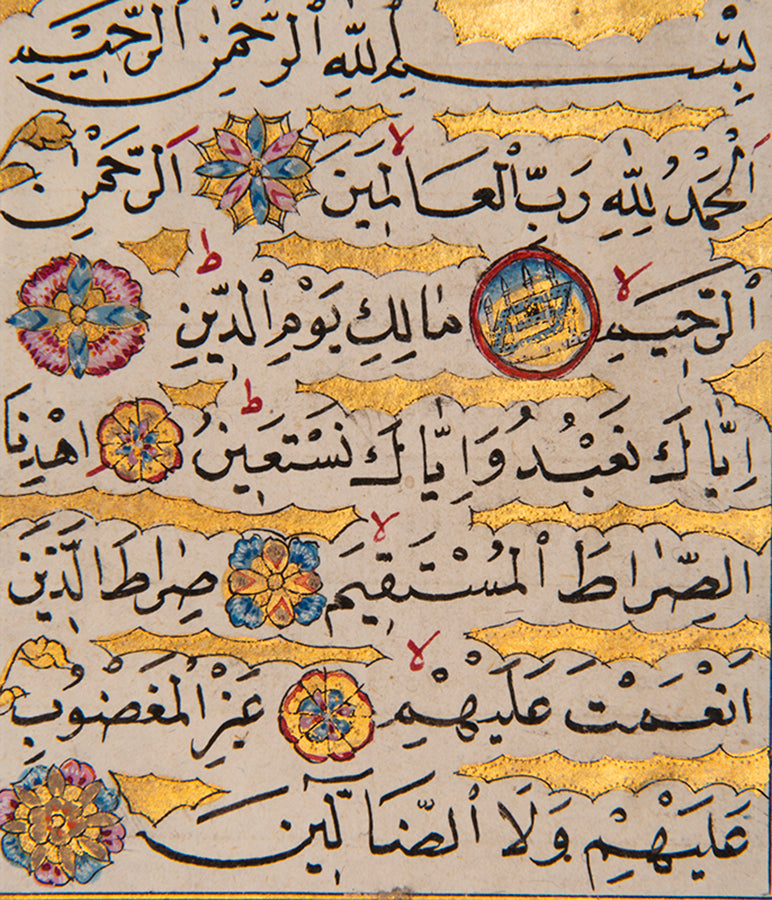 بِسْمِ اللّٰهِ الرَّحْمٰنِ الرَّحِيمِ
اَلْحَمْدُ لِلّٰهِ رَبِّ الْعَالَمِينَ لا اَلرَّحْمٰنِ
الرَّحِيمِ لا مَالِكِ يَوْمِ الدِّينِ ط
اِيَّاكَ نَعْبُدُ وَاِيَّاكَ نَسْتَعِينُ ط اِهْدِنَا
الصِّرَاطَ الْمُسْتَقِيمَ لا صِرَاطَ الَّذِينَ
اَنْعَمْتَ عَلَيْهِمْ لا غَيْرِ الْمَغْضُوبِ
عَلَيْهِمْ وَلَا الضَّآلِّينَ